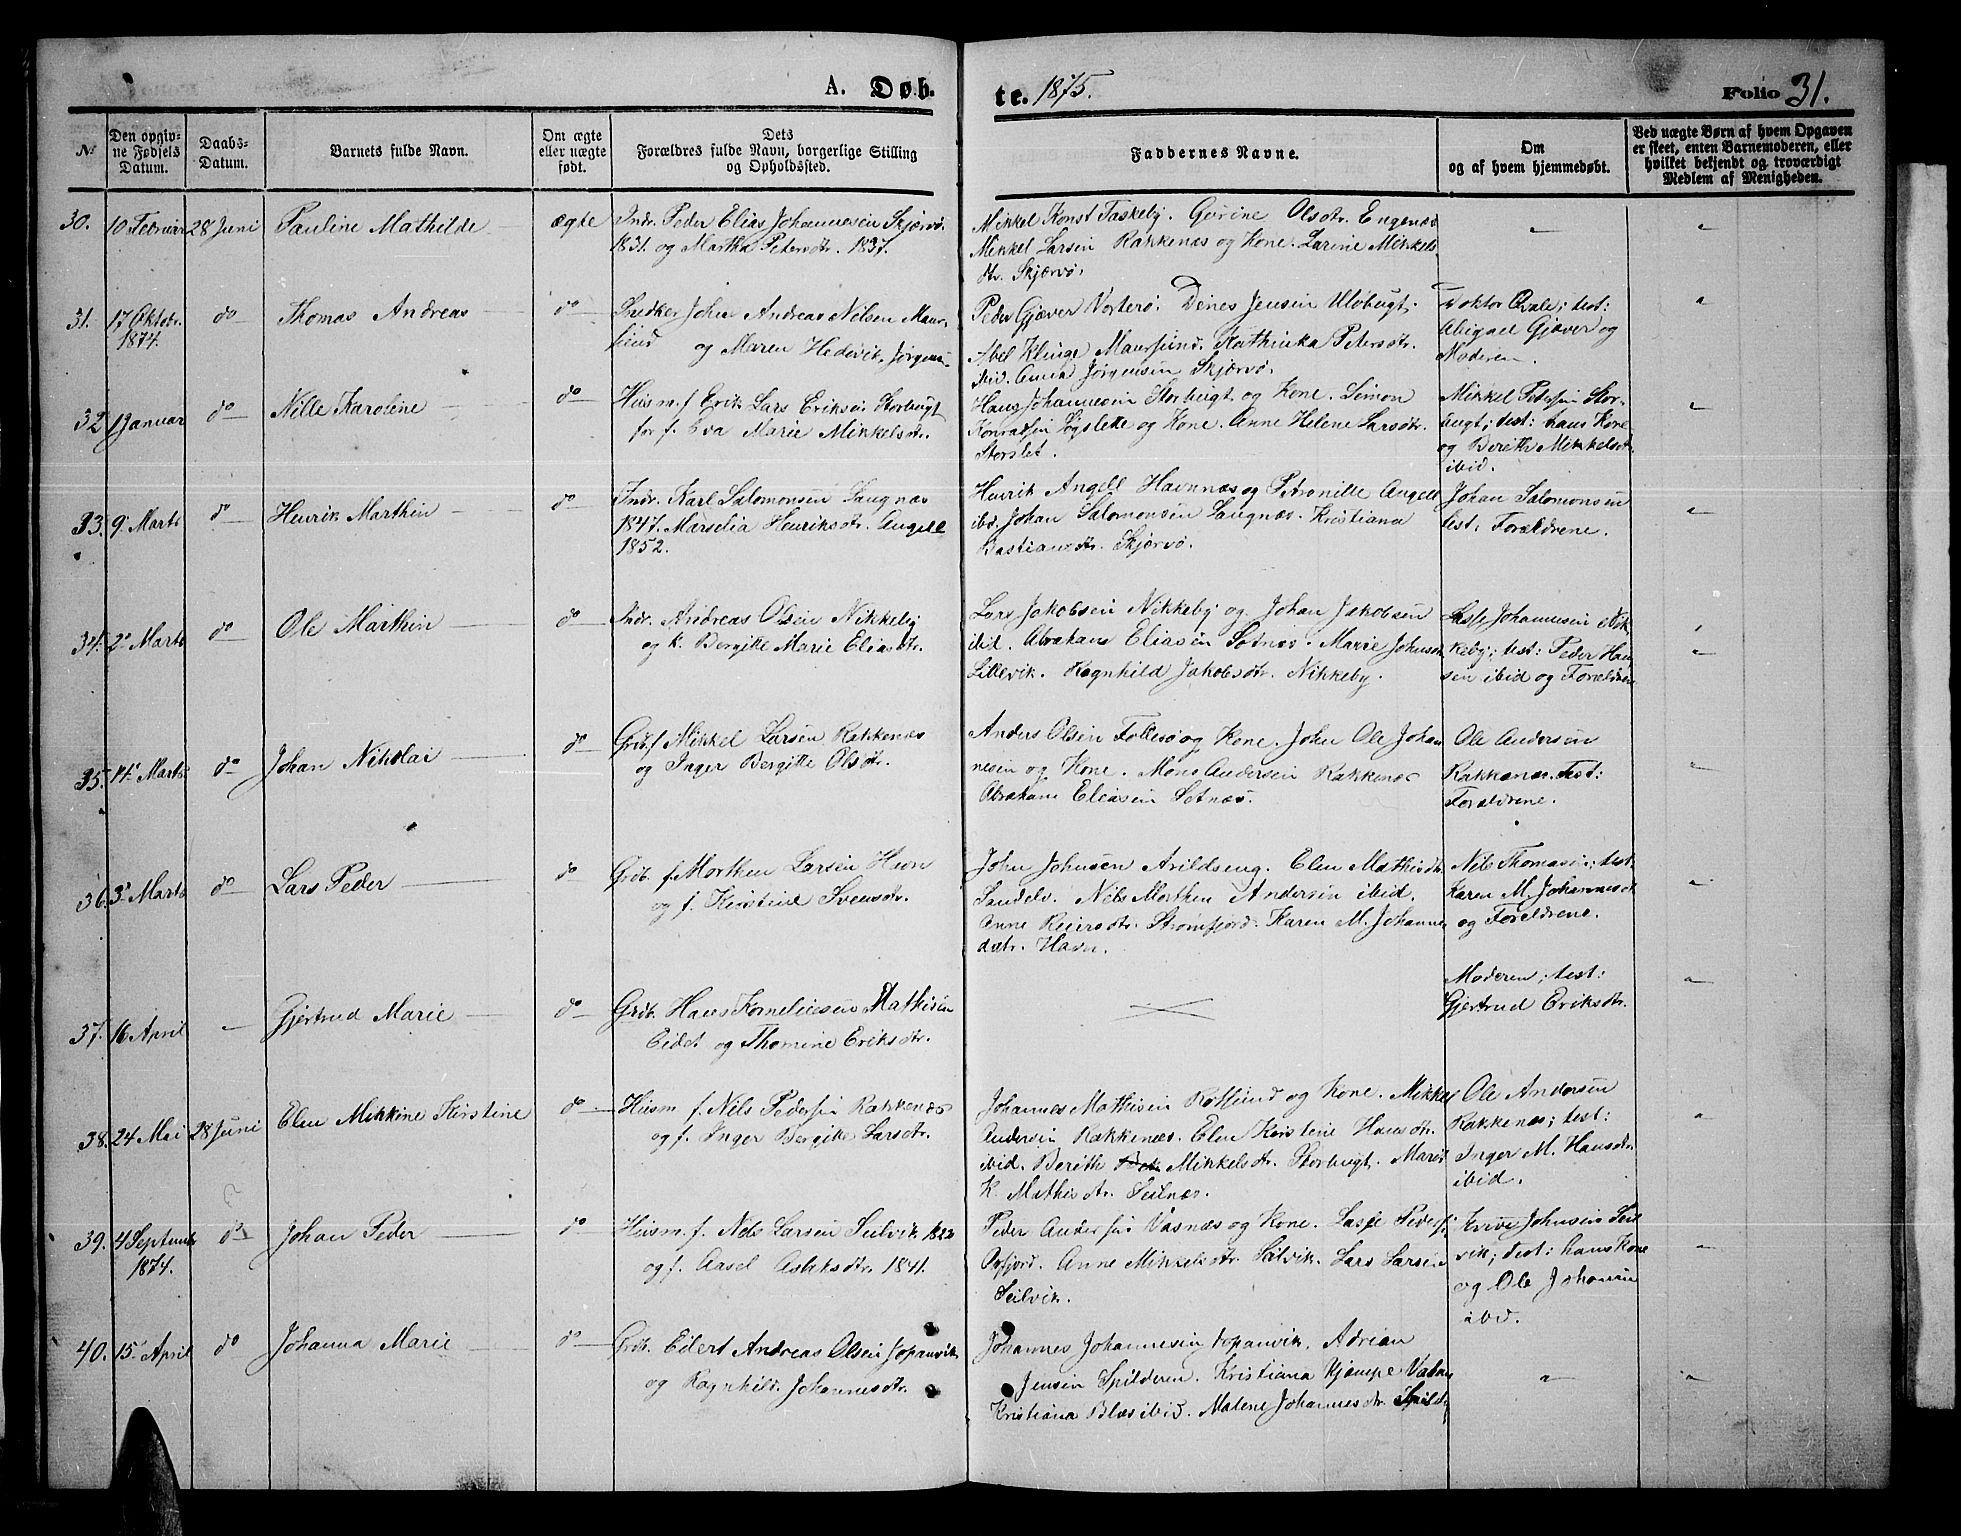 A. Døb.
te. 1875.
Folio 31.
No
Den opgiv-
ne Fødsels
Datum.
Daabs-
Datum.
Barnets fulde Navn.
Om ægte
eller uægte
født.
Dets
Forældres fulde Navn, borgerlige Stilling
og Opholdssted.
Faddernes Navne.
Om
og af hvem hjemmedøbt.
Ved uægte Børn af hvem Opgaven
er skeet, enten Barnemoderen, eller
hvilket bekjendt og troværdigt
Medlem af Menigheden.
30. 10 Februar 28 Juni Pauline Mathilde ægte
Indr. Peder Elias Johannesen Skjærvø.
1831. og Martha Petersdtr. 1837.
Mikkel Konst Taskeby. Gurine Olsdtr. Engenæs
Mikkel Larsen Rakkenæs og Kone. Larine Mikkels
dtr. Skjærvø.
31. 17 Oktobr.
1874. do Thomas Andreas do
Snedker John Andreas Nilsen Maur-
sund og Maren Hedevik Jørgens
Peder Gjæver Vorterø. Denes Jensen Uløbugt.
Abel Klinge Maursund. Kathinka Petersdtr.
ibid. Anna Jørgensen Skjærvø.
Doktor Qvale; test:
Abigael Gjæver og
Moderen.
32 1 Januar do Nille Karoline do
Husm. f. Erik Lars Eriksen Storbugt
for f. Eva Marie Mikkelsdtr.
Hans Johannesen Storbugt og Kone. Simon
Konradsen Fogslette og Kone. Anne Helene Larsdtr.
Storslet.
Mikkel Petersen Stor-
bugt; test: hans Kone
og Berith Mikkelsdtr.
ibid.
33. 9. Marts do Henrik Marthin do
Indr. Karl Salomonsen Laugnæs
1847. Marselia Henriksdtr. Angell
1852.
Henrik Angell Havnnæs og Petronille Angell
ibd. Johan Salomonsen Laugnæs. Kristiana
Bastiansdtr. Skjærvø.
Johan Salomonsen
test: Forældrene.
34. 2. Marts do Ole Marthin do
Indr. Andreas Olsen Nikkeby
og k. Bergitte Marie Eliasdtr.
Lars Jakobsen Nikkeby og Johan Jakobsen
ibid. Abraham Eliasen Sotnæs. Marie Johnsdtr
Lillevik. Ragnhild Jakobsdtr. Nikkeby.
Lasse Johannesen Nik-
keby; test: Peder Han-
sen ibid og Forældrene
35. 14. Marts do Johan Nikolai do
Grb. f Mikkel Larsen Rakkenæs
og Inger Bergitte Olsdtr.
Anders Olsen Follesø og Kone. John Ole Johan
nesen og Kone. Mons Andersen Rakkenæs
Abraham Eliasen Sotnæs.
Ole Andersen
Rakkenæs. Test:
Forældrene.
36. 3. Marts do Lars Peder do
Grb. f. Morthen Larsen Havn
og f. Kirstine Svensdtr.
John Johnsen Arildseng. Elen Mathisdtr.
Sandelv. Nils Morthen Andersen ibid.
Anne Reiersdtr. Strømfjord. Karen M. Johannes
datr. Havn.
Nils Thomassen; test:
Karen M. Johannesdtr
og Forældrene.
37. 16 April Gjertrud Marie do
Grb. Hans Korneliussen Mathisen
Eidet og Thomine Eriksdtr.
Moderen; test:
Gjertrud Eriksdtr.
38. 24 Mai 28 Juni Elen Mikkine Kirstine do
Husm f. Nils Pedersen Rakkenæs
og f. Inger Bergitte Larsdtr.
Johannes Mathisen Rotsund og Kone. Mikkel
Andersen Rakkenæs. Elen Kirstine Hansdtr.
ibid. Berith Mikkelsdtr. Storbugt. Marit
K. Mathisdtr. Seilnæs.
Ole Andersen
Rakkenæs; test:
Inger M. Hansdtr.
ibid.
39. 4 Septembr
1874. do Johan Peder do
Husm. f. Nils Larsen Seilvik 1822
og f. Aasel Aslaksdtr. 1841.
Peder Andersen Vasnæs og Kone. Lasse Peders.
Oxfjord. Anne Mikkelsdtr. Seilvik. Lars Larsen
Seilvik.
Johnsen Seil
vik; test: hans Kone
og Ole Johansen
ibd.
40. 15. April do Johanna Marie do
Grb. Eilert Andreas Olsen Jopanvik
og Ragnhild Johannesdtr.
Johannes Johannesen Jopanvik. Adrian
Jensen Spilderen. Kristiana Kjempe Vadan
Kristiana Blæs ibid. Malene Johannesdtr. Spild.